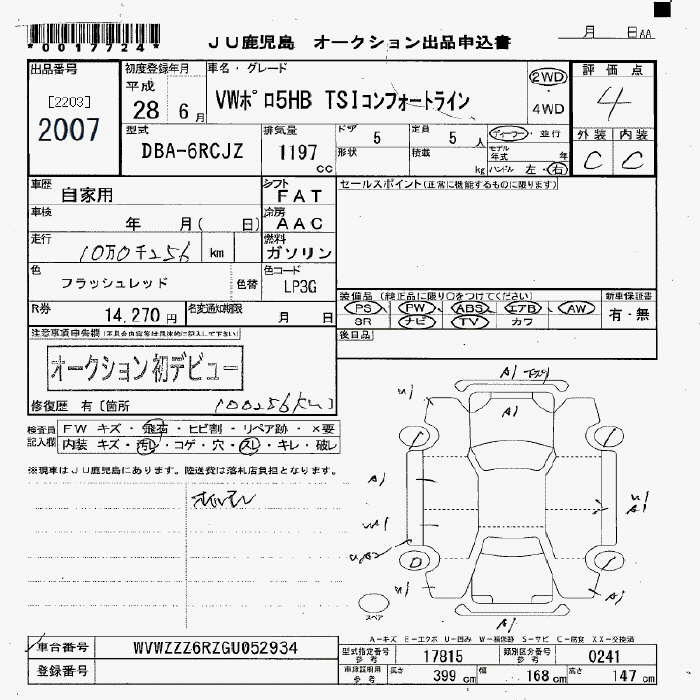 *0017724*
JU鹿児島 オークション出品申込書
月 日AA
出品番号 初度登録年月 車名・グレード 評価点
[2203] 平成 28 6月 VWポロ5HB TSIコンフォートライン 2WD 4WD 4
2007
型式 排気量 ドア 5 定員 5人 ディーラー・並行 外装 内装
DBA-6RCJZ 1197cc 形状 積載 kg モデル年式 年 C C
ハンドル 左・右
車歴 自家用 シフト FAT セールスポイント(正常に機能するものに限ります)
車検 年 月( 日) 冷房 AAC
走行 10万0千256 km 燃料 ガソリン
色 フラッシュレッド 色替 色コード LP3G
装備品(純正品に限り○をつけてください) 新車保証書
R券 14,270円 名変通知期限 月 日 PS PW ABS エアB AW 有・無
SR ナビ TV カワ
注意事項申告欄(不具合内容等は具体的に記入して下さい) 後日品
オークション初デビュー
修復歴 有[箇所 100256km]
検査員記入欄 FW キズ・飛石・ヒビ割・リペア跡・×要
内装 キズ・汚レ・コゲ・穴・スレ・キレ・破レ
※現車はJU鹿児島にあります。陸送費は落札店負担となります。
A1
A1
U1
A1
U1
A1
D
U1
A1
A1
スペア
A-キズ E-エクボ U-凹み W-補修跡 S-サビ C-腐食 XX-交換済
車台番号 WVWZZZ6RZGU052934 型式指定番号 参考 17815 類別区分番号 参考 0241
登録番号 車検証明用 参考 長さ 399cm 幅 168cm 高さ 147cm